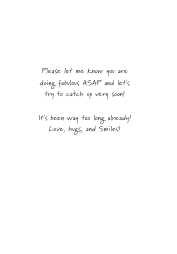 Please let me know you are
doing fabulous ASAP and let's
try to catch up very soon!
It's been way too long already!
Love, hugs, and Smiles!